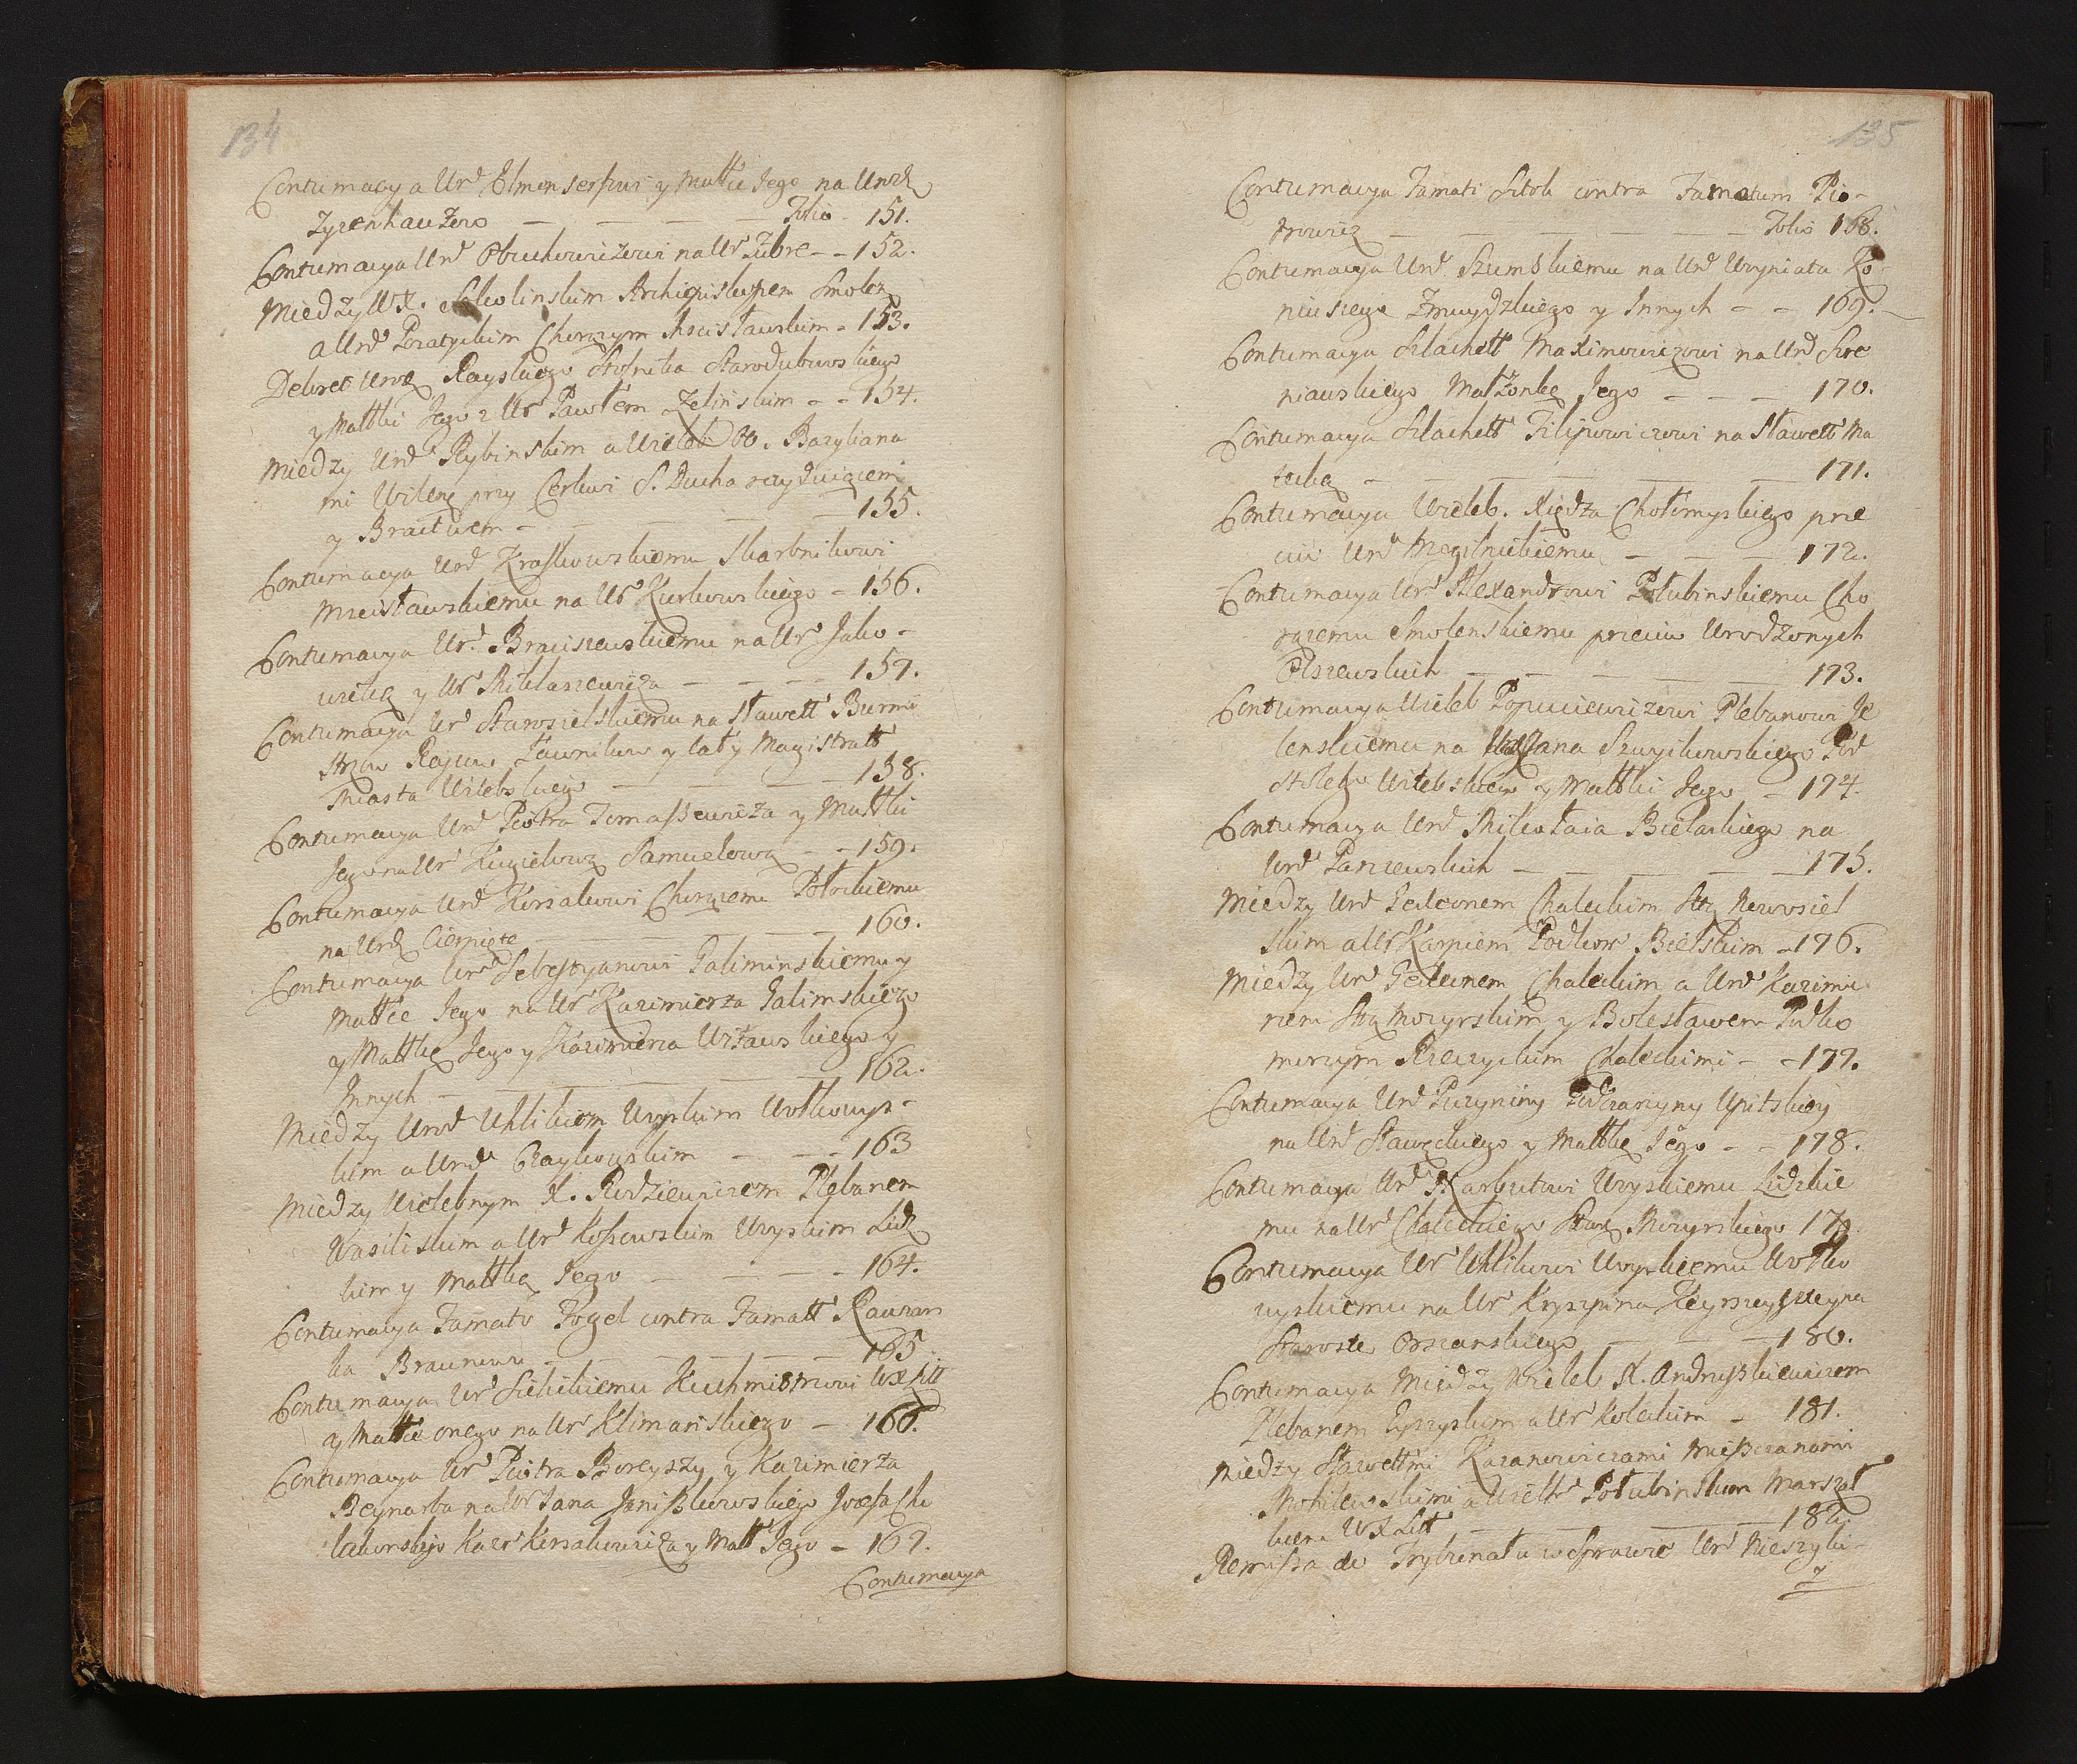 134
Contumacya Urd Elmonserfowi y Małże Jego na Urodz
Zyzenhauzero — — — — Folio - 151.
Contumacya Urd Obuchowiczowi na Ur Zubre - - 152.
Miedzy WX. Sokolinskim Archiepiskupem Smolen
a Urd Poratyckim Chorązym Mscisławskim - 153.
Dekret Urodz Rayskiego Stolnika Starodubowskiego
y Małłki Jego z Ur Pawłem Zelinskim - - 154.
Miedzy Urd Rybinskim a Wieleb OO. Bazyliana
mi Wilenz przy Cerkwi S. Ducha
y Bractwem - — — — 155.
Contumacya Urd Kraskowskiemu Skarbnikowi
Mscisławskiemu na Ur Kurkowskiego - 156.
Contumacya Ur. Braciszewskiemu na Ur Jako-
wicką y Ur Mikłaszewicza — — — 157.
Contumacya Ur Starosielskiemu na sławett Burmi
strzow Raycow Ławnikow y cały Magistratt
Miasta Witebskiego — — — 158.
Contumacya Urd Piotra Tomaszewicza y Małłki
Jego na Ur Kugielową Samuelową - - 159.
Contumacya Urd Korsakowi Chorązemu Połockiemu
na Urdz Cierpiętę — — — 160.
Contumacya Urd Sebestyanowi Galiminskiemu y
Małłce Jego na Ur Kazimierza Galimskiego
y Małłkę Jego y Kazimierza Wizławskiego y
Innych — — — — 162.
Miedzy Urod Uhlikiem Woyskim Wołkowys-
kim a Urod Czaykowskim — — - 163
Miedzy Wielebnym X. Rudziewiczem Plebanem
Wasiliskim a Ur Kossowskim Woyskim Lidz
kim y Małłką Jego — — — 164.
Contumacya Famato Fogel contra Famatt Kaczan
ka Braunowi — — — — 165.
Contumacya Ur Sielickiemu Kuchmistrzowi WXLitt
y Małłce onego na Ur Klimanskiego — 166.
Contumacya Ur Piotra Boreyszy y Kazimierza
Reynarta na Ur Jana Janiszkowskiego
Kazr Korsakowicza y Małł Jego - 167.
Contumacya
135
Contumacya Famati Sitok contra Famatum Pio-
trowicz — — — — — Folio 168.
Contumacya Urd Szumskiemu na Urd Woyniata Ko-
niuszego Zmuydzkiego y Innych - - 169.
Contumacya Szlachett Maximowiczowi na Urd Sore
niawskiego Małżonkę Jego — — — 170.
Contumacya Szlachett Filipowiczowi na Sławett Ma
tecką — — — — — 171.
Contumacya Wieleb. Xiędza Chołomyskiego prze
ciw Urd Mogilnickiemu — — — 172.
Contumacya Urd Alexandrowi Połubinskiemu Cho
rązemu Smolenskiemu przeciw Urodzonych
Olszewskich — — — — — 173.
Contumacya Wieleb Popuciewiczowi Plebanowi Je
lenskiemu na Jana Szuyikowskiego Pod
stolego Witebskiego y Małłki Jego - 174.
Contumacya Urd Mikołaia Bielackiego na
Urd Paszewskich — — — — — 175.
Miedzy Urd Gedeonem Chaleckim Sttą Nowosiel
skim a Ur Karpiem Podkom Bielskim - 176.
Miedzy Urd Gedeonem Chaleckim a Urd Kazimie
rzem Sttą Mozyrskim y Bolesławem Podko
morzym Rzeczyckim Chaleckimi - - 177.
Contumacya Urd Puzyniny Podczaszyny Upitskiey
na Urd Sławeckiego y Małłkę Jego - - 178.
Contumacya Urd Narbutowi Woyskiemu Lidzkie
mu na Ur Chaleckiego Star Mozyrskiego 179
Contumacya Ur Uhlikowi Woyskiemu Wołko
wyskiemu na Ur Kryszpina Kierszeyszteyna
Staroste Orszanskiego — — 180.
Contumacya Miedzy Wieleb X. Andruszkiewiczem
Plebanem Eyszyskim a Ur Koleckim - 181.
Miedzy Sławettmi Kazanowiczami Mieszczanami
Mohilewskimi a Ur Połubinskim Marszał
kiem WXLitt — — — 182.
Remissa do Trybunału w Sprawie Ur Kieszyki-
y